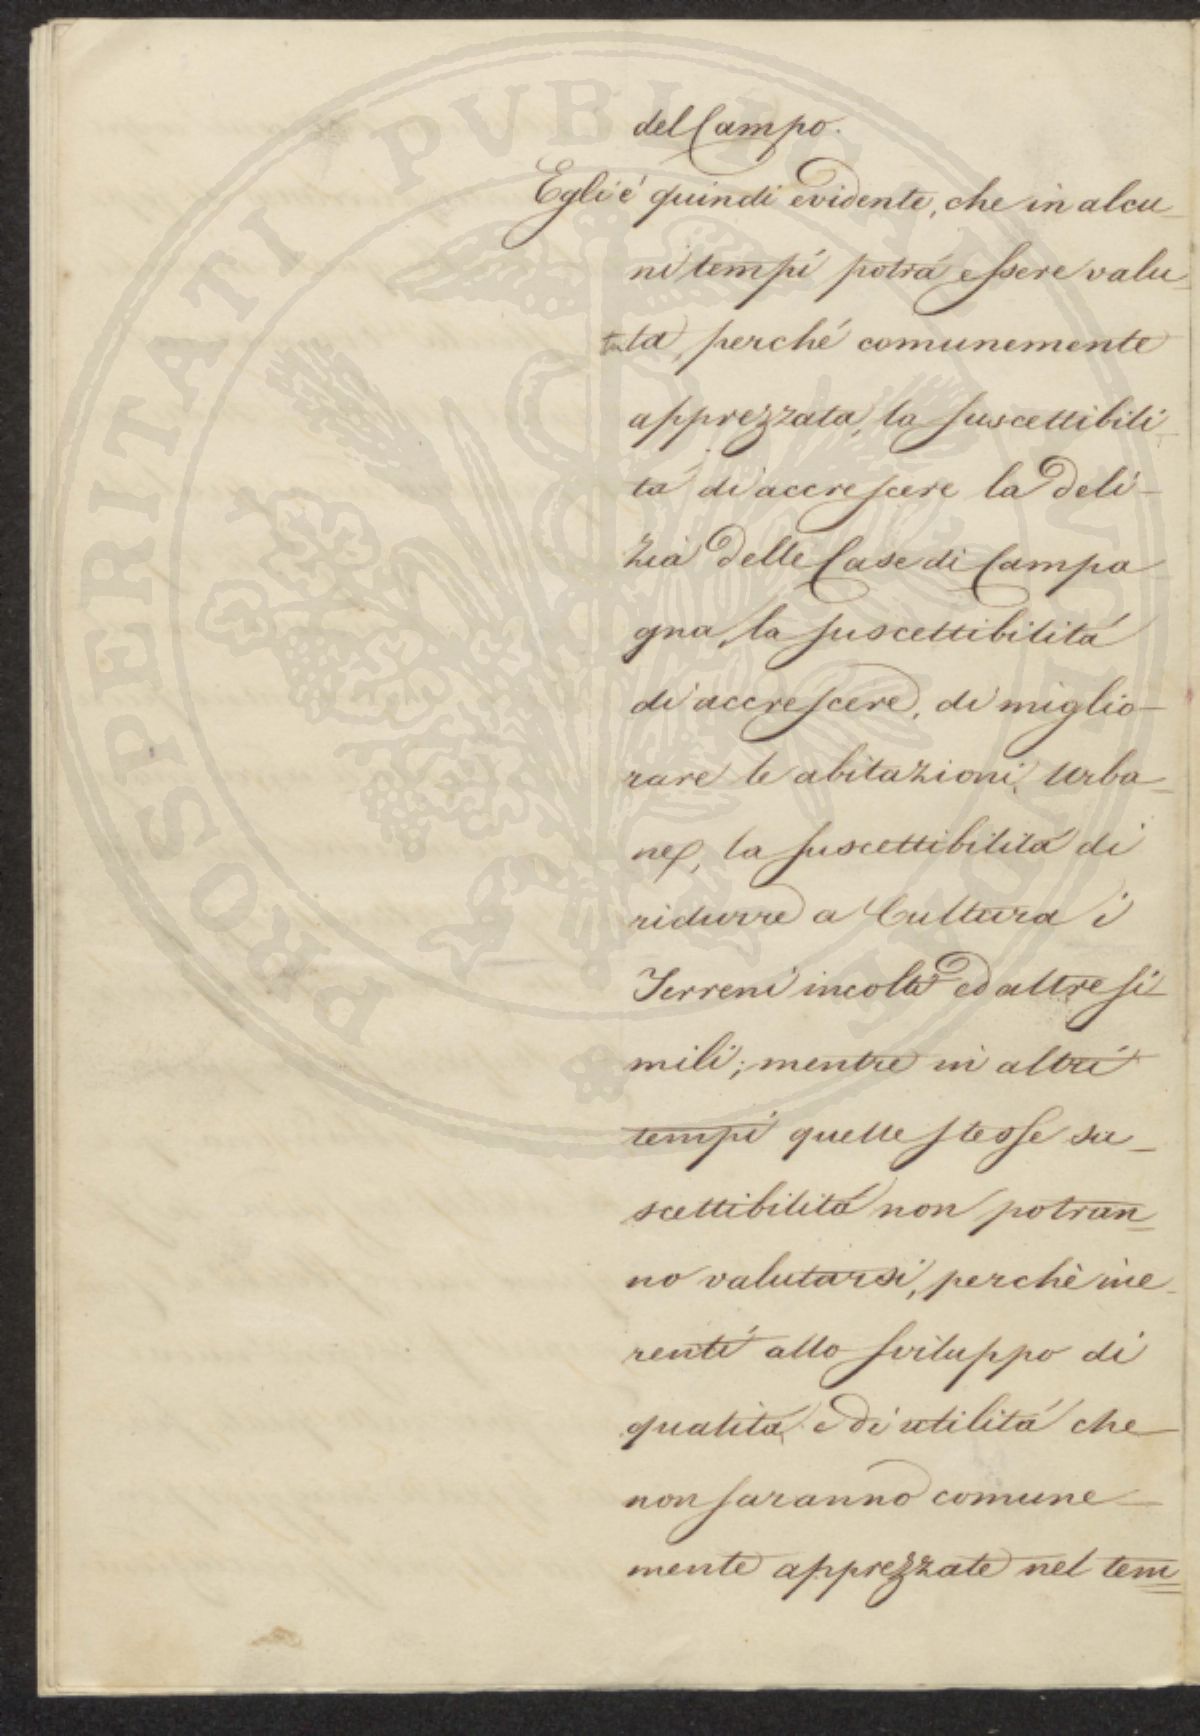 del Campo.
Egli é quindi evidente, che in alcu_
ni tempi potrá essere valu_
tuta, perché comunemente
apprezzata, la suscettibili_
tá di accrescere la deli-
zia delle Case di Campa
gna, la suscettibilitá
di accrescere, di miglio-
rare le abitazioni Urba=
ne, la suscettibilitá di
ridurre a Cultura i
Terreni incolti ed altre si_
mili; mentre in altri
tempi quelle stesse su_
scettibilitá non potran=
no valutarsi, perchè ine_
renti allo sviluppo di
qualitá e di utilitá che
non saranno comune_
mente apprezzate nel tem=
PROSPERITATI PVBLICAE AVGENDAE